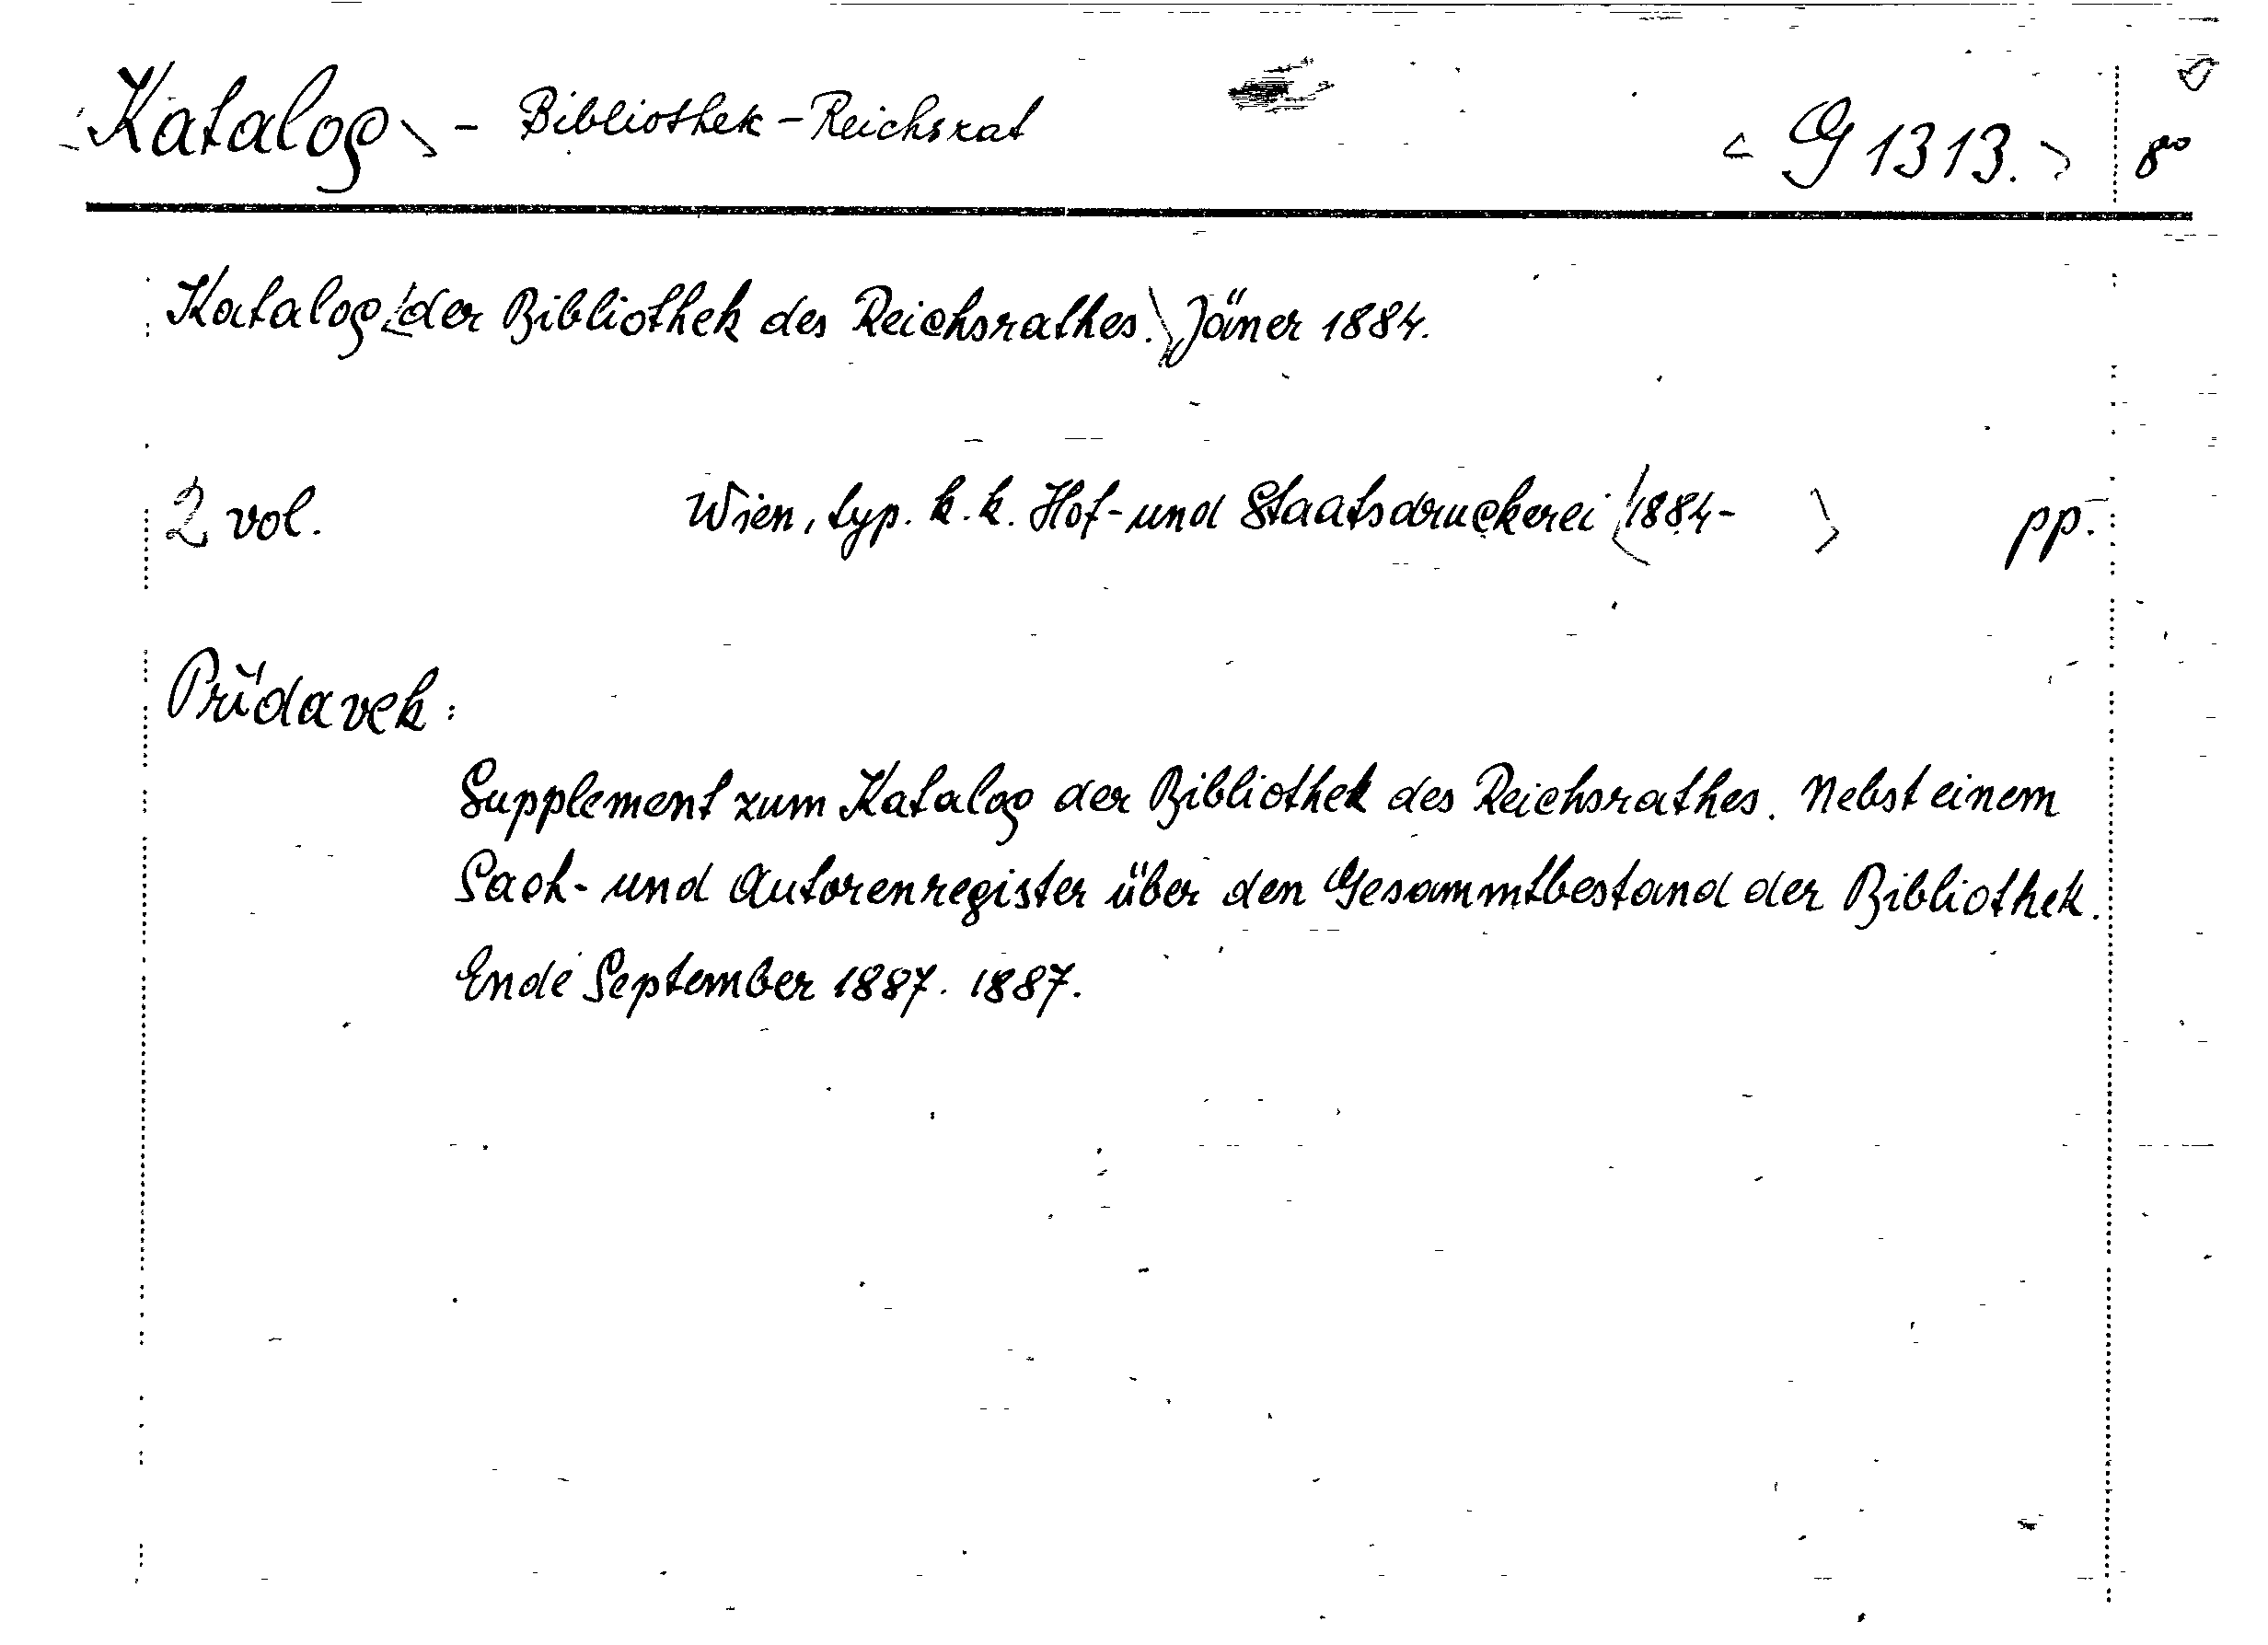 Katalog - Bibliothek - Reichsrat <G 1313.> 8°
Katalog <der Bibliothek des Reichsrathes.> Jäner 1884.
2 vol. Wien, typ. k. k. Hof- und Staatsdruckerei <1884- > pp.
Přídavek:
Supplement zum Katalog der Bibliothek des Reichsrathes. Nebst einem
Sach- und Autorenregister über den Gesammtbestand der Bibliothek.
Ende September 1887. 1887.